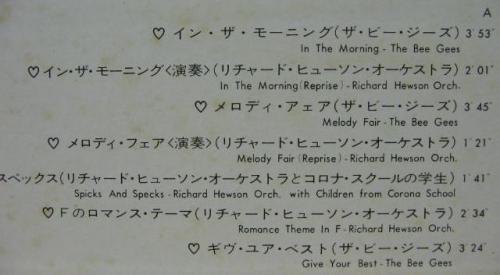 A
♡ イン・ザ・モーニング(ザ・ビー・ジーズ) 3′53″
In The Morning - The Bee Gees
♡イン・ザ・モーニング〈演奏〉(リチャード・ヒューソン・オーケストラ) 2′01″
In The Morning (Reprise) - Richard Hewson Orch.
♡ メロディ・アェア(ザ・ビー・ジーズ) 3′45″
Melody Fair - The Bee Gees
♡ メロディ・フェア〈演奏〉(リチャード・ヒューソン・オーケストラ) 1′21″
Melody Fair (Reprise) - Richard Hewson Orch.
スペックス(リチャード・ヒューソン・オーケストラとコロナ・スクールの学生) 1′41″
Spicks And Specks - Richard Hewson Orch. with Children from Corona School
♡ Fのロマンス・テーマ(リチャード・ヒューソン・オーケストラ) 2′34″
Romance Theme In F - Richard Hewson Orch.
♡ ギヴ・ユア・ベスト(ザ・ビー・ジーズ) 3′24″
Give Your Best - The Bee Gees